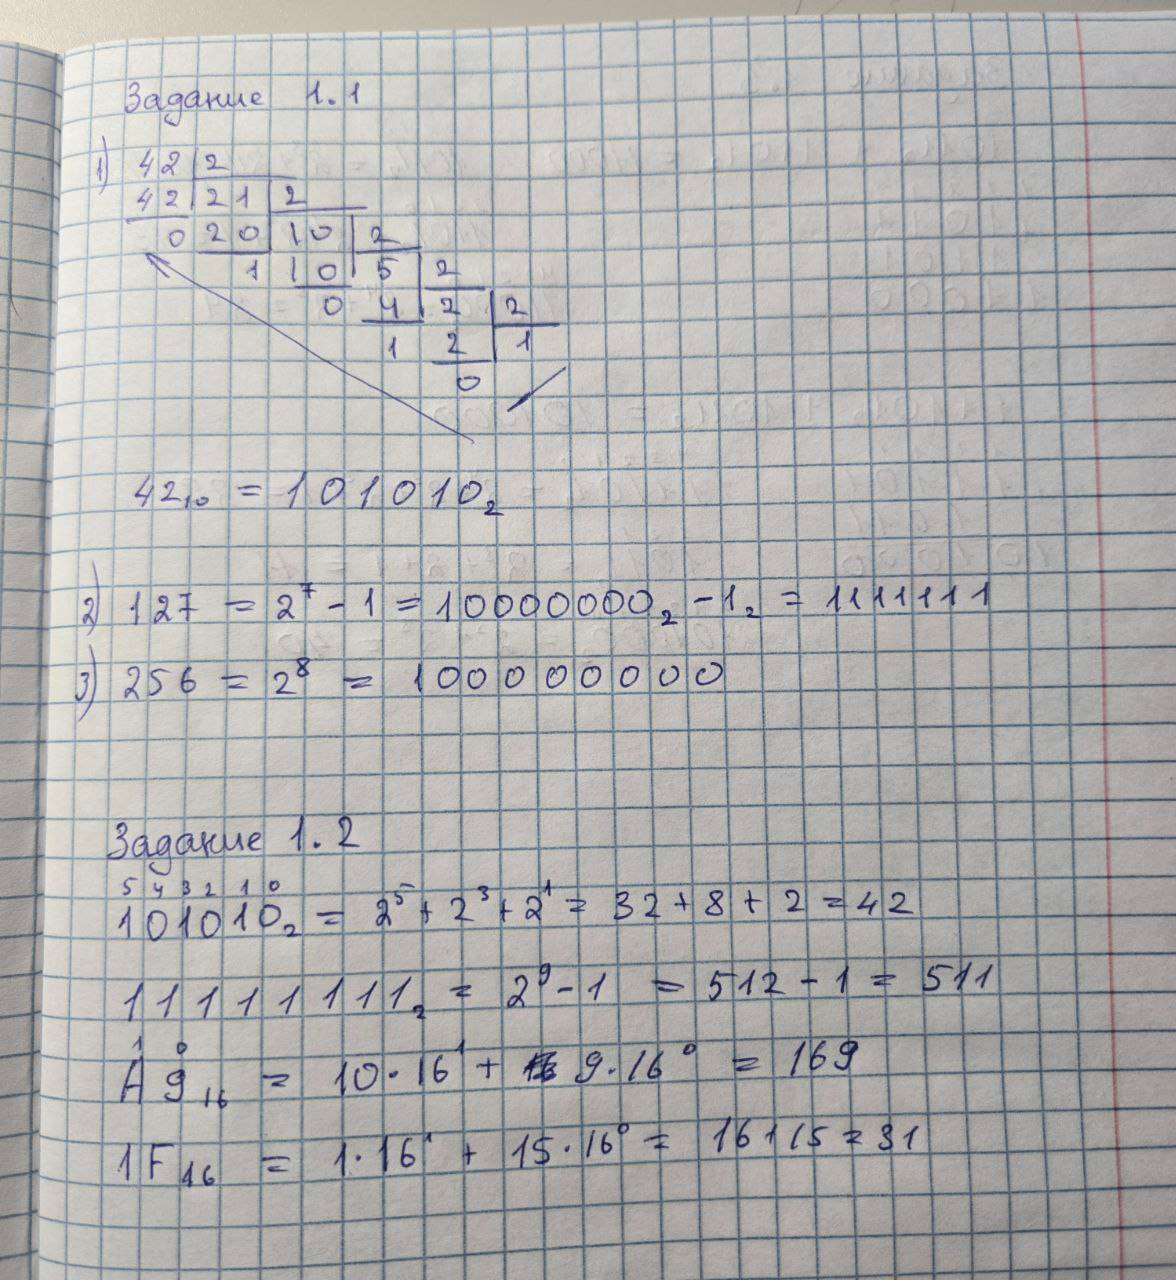 Задание 1.1
1) 42 2
42 21 2
0 20 10 2
1 10 5 2
0 4 2 2
1 2 1
0
42₁₀ = 101010₂
2) 127 = 2⁷ - 1 = 10000000₂ - 1₂ = 1111111
3) 256 = 2⁸ = 100000000
Задание 1.2
5 4 3 2 1 0
101010₂ = 2⁵ + 2³ + 2¹ = 32 + 8 + 2 = 42
111111111₂ = 2⁹ - 1 = 512 - 1 = 511
1 0
A9₁₆ = 10·16¹ + 9·16⁰ = 169
1F₁₆ = 1·16¹ + 15·16⁰ = 16+15=31